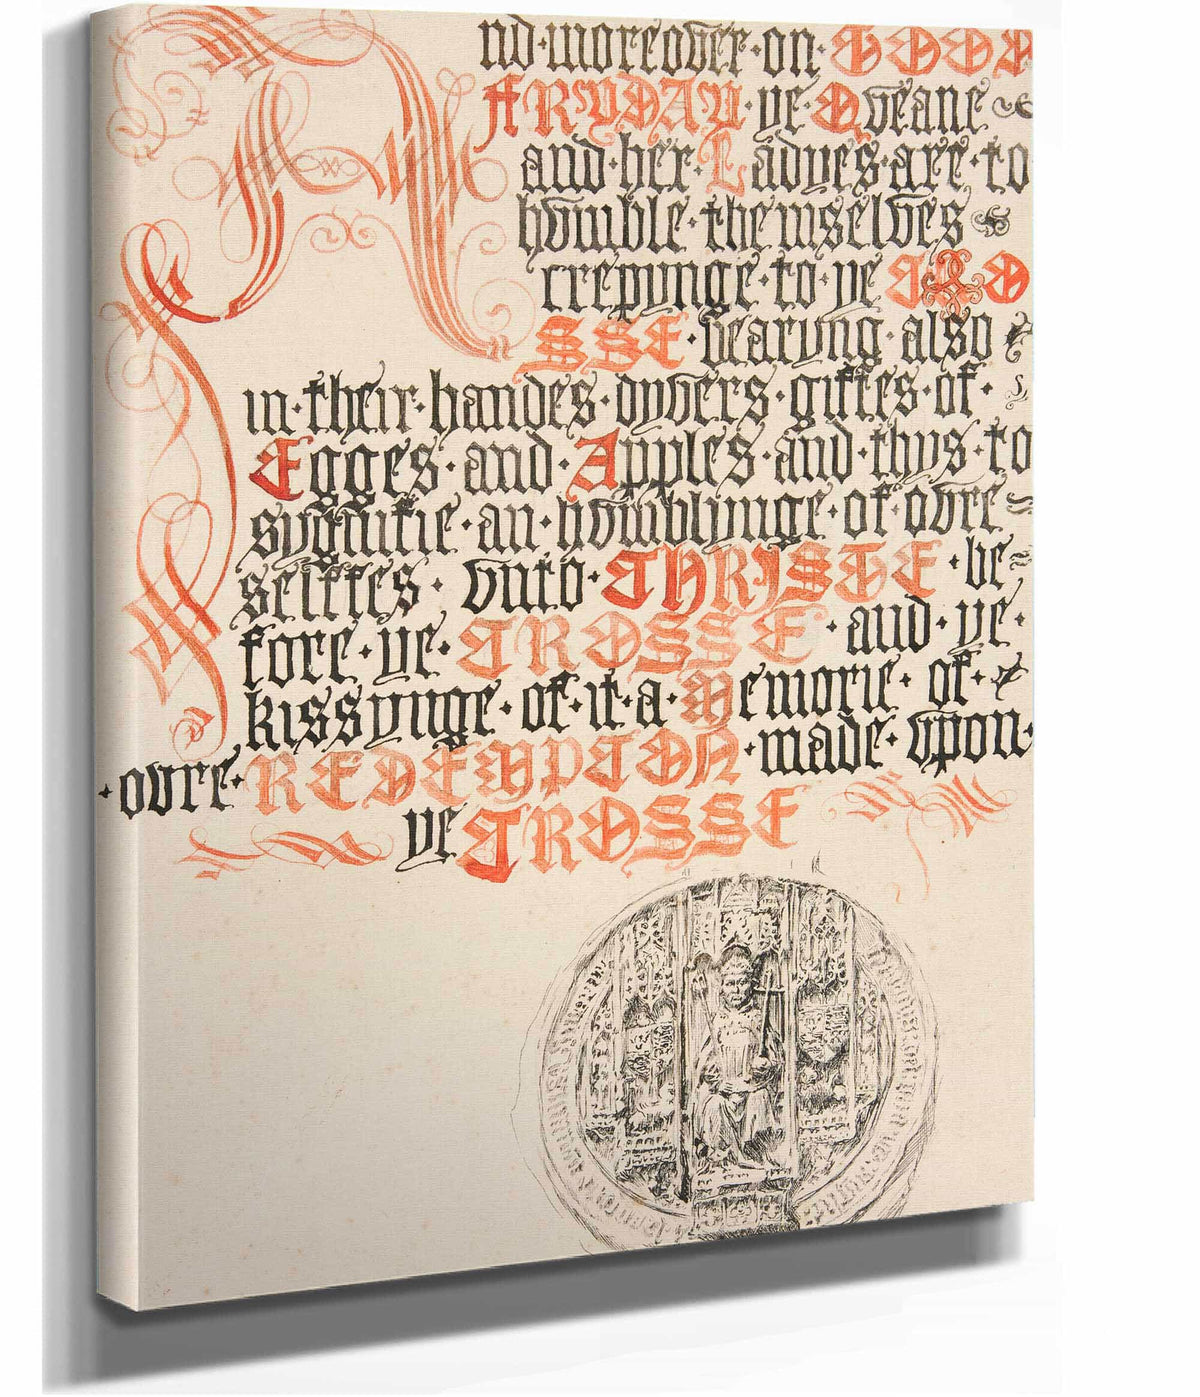 And·moreover·on·GOOD
FRYDAY·ye·Qveane
and·her·Ladyes·are·to
hvmble·themselves
crepynge·to·ye CRO
SSE·bearyng·also
in·their·handes·dyvers·giftes·of·
Egges·and·Apples·and·thys·to
sygnifie·an·hvmblynge·of·ovre
selffes·vnto·CHRISTE·be
fore·ye·CROSSE·and·ye·
kissynge·of·it·a·Memorie·of·
·ovre·REDEMPCON·made·vpon·
ye CROSSE